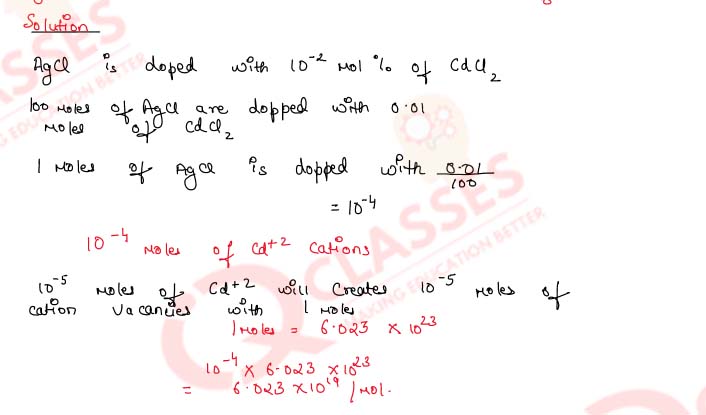 Solution
AgCl is doped with 10⁻² mol % of CdCl₂
100 moles of AgCl are dopped with 0.01
moles of CdCl₂
1 moles of AgCl is dopped with 0.01/100
= 10⁻⁴
10⁻⁴ moles of Cd⁺² cations
10⁻⁵ moles of Cd⁺² will creates 10⁻⁵ moles of
cation vacancies with 1 moles
1 moles = 6.023 × 10²³
10⁻⁴ × 6.023 × 10²³
= 6.023 × 10¹⁹ / mol.
CLASSES
MAKING EDUCATION BETTER